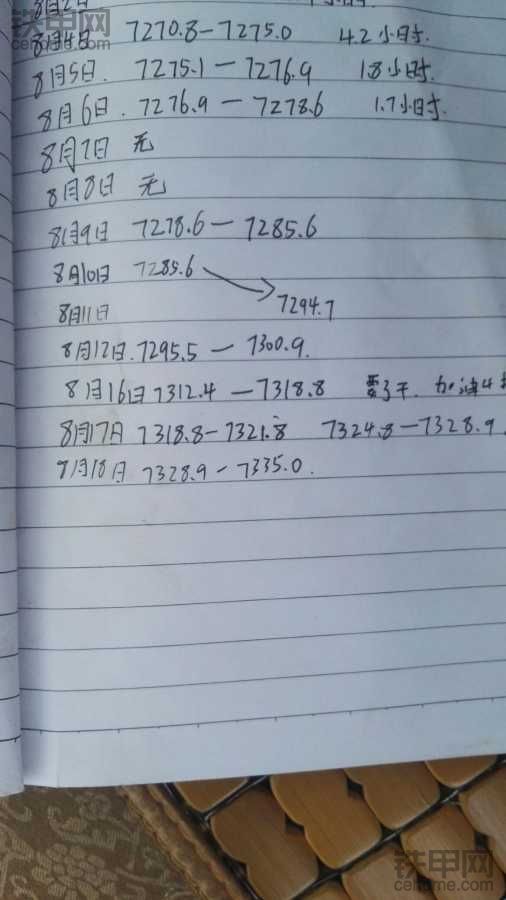 铁甲网
cehome.com
8月2日 小时.
8月4日 7270.8-7275.0 4.2小时.
8月5日. 7275.1-7276.9 1.8小时.
8月6日. 7276.9-7278.6 1.7小时.
8月7日 无
8月8日 无
8月9日 7278.6-7285.6
8月10日 7285.6
7294.7
8月11日
8月12日.7295.5-7300.9.
8月16日7312.4-7318.8 加油
8月17日 7318.8-7321.8 7324.8-7328.9.
8月18日 7328.9-7335.0.
铁甲网
cehome.com